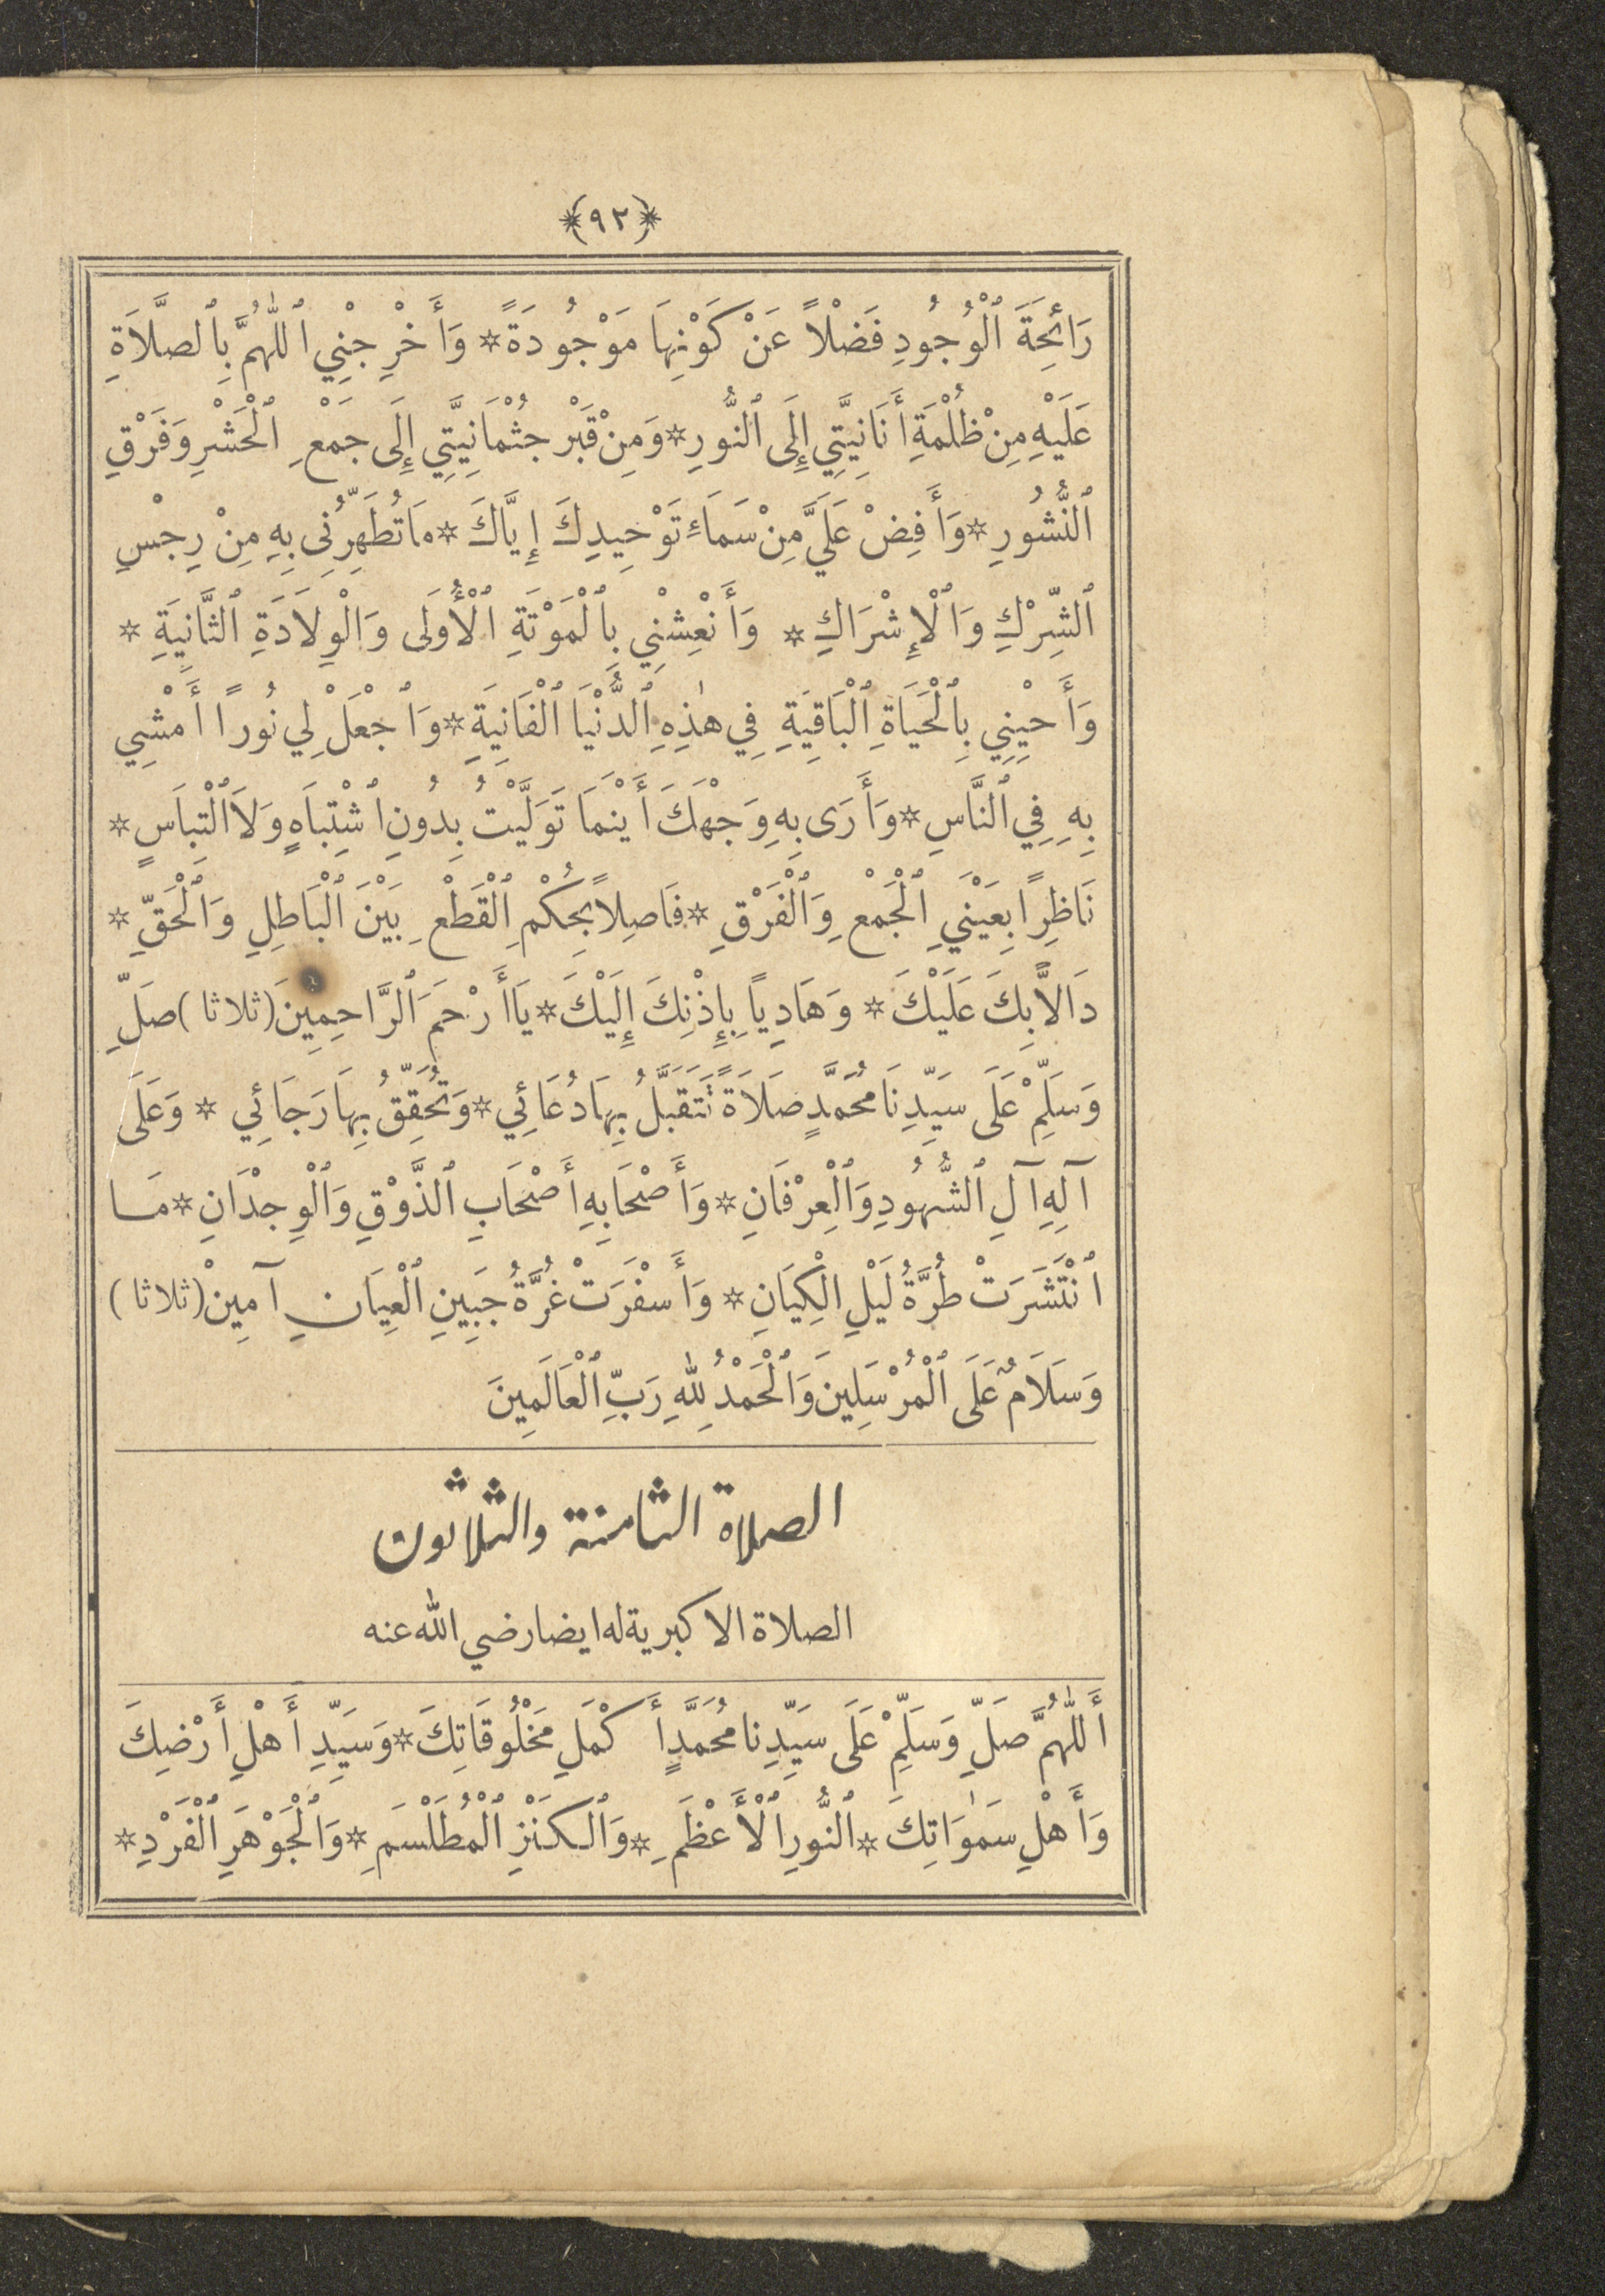 ﴿٩٢﴾
رَائِحَةَ ٱلْوُجُودِ فَضْلاً عَنْ كَوْنِهَا مَوْجُودَةً * وَأَخْرِجْنِي ٱللّٰهُمَّ بِٱلصَّلَاةِ
عَلَيْهِ مِنْ ظُلْمَةِ أَنَانِيَّتِي إِلَى ٱلنُّورِ * وَمِنْ قَبْرِ جُثْمَانِيَّتِي إِلَى جَمْعِ ٱلْحَشْرِ وَفَرْقِ
ٱلنُّشُورِ * وَأَفِضْ عَلَيَّ مِنْ سَمَاءِ تَوْحِيدِكَ إِيَّاكَ * مَا تُطَهِّرُنِى بِهِ مِنْ رِجْسِ
ٱلشِّرْكِ وَٱلْإِشْرَاكِ * وَأَنْعِشْنِي بِٱلْمَوْتَةِ ٱلْأُولَى وَٱلْوِلَادَةِ ٱلثَّانِيَةِ *
وَأَحْيِنِي بِٱلْحَيَاةِ ٱلْبَاقِيَةِ فِي هٰذِهِ ٱلدُّنْيَا ٱلْفَانِيَةِ * وَٱجْعَلْ لِي نُورًا أَمْشِي
بِهِ فِي ٱلنَّاسِ * وَأَرَى بِهِ وَجْهَكَ أَيْنَمَا تَوَلَّيْتُ بِدُونِ ٱشْتِبَاهٍ وَلَا ٱلْتِبَاسٍ *
نَاظِرًا بِعَيْنَيِ ٱلْجَمْعِ وَٱلْفَرْقِ * فَاصِلاً بِحُكْمِ ٱلْقَطْعِ بَيْنَ ٱلْبَاطِلِ وَٱلْحَقِّ *
دَالاًّ بِكَ عَلَيْكَ * وَهَادِياً بِإِذْنِكَ إِلَيْكَ * يَا أَرْحَمَ ٱلرَّاحِمِينَ (ثلاثا) صَلِّ
وَسَلِّمْ عَلَى سَيِّدِنَا مُحَمَّدٍ صَلَاةً تَتَقَبَّلُ بِهَا دُعَائِي * وَتُحَقِّقُ بِهَا رَجَائِي * وَعَلَى
آلِهِ آلِ ٱلشُّهُودِ وَٱلْعِرْفَانِ * وَأَصْحَابِهِ أَصْحَابِ ٱلذَّوْقِ وَٱلْوِجْدَانِ * مَا
ٱنْتَشَرَتْ طُرَّةُ لَيْلِ ٱلْكِيَانِ * وَأَسْفَرَتْ غُرَّةُ جَبِينِ ٱلْعِيَانِ آمِينْ (ثلاثا)
وَسَلَامٌ عَلَى ٱلْمُرْسَلِينَ وَٱلْحَمْدُ لِلّٰهِ رَبِّ ٱلْعَالَمِينَ
الصلاة الثامنة والثلاثون
الصلاة الاكبرية له ايضا رضي الله عنه
أَللّٰهُمَّ صَلِّ وَسَلِّمْ عَلَى سَيِّدِنا مُحَمَّدٍ أَكْمَلِ مَخْلُوقَاتِكَ * وَسَيِّدِ أَهْلِ أَرْضِكَ
وَأَهْلِ سَمٰوَاتِكَ * ٱلنُّورِ ٱلْأَعْظَمِ * وَٱلْكَنْزِ ٱلْمُطَلْسَمِ * وَٱلْجَوْهَرِ ٱلْفَرْدِ *